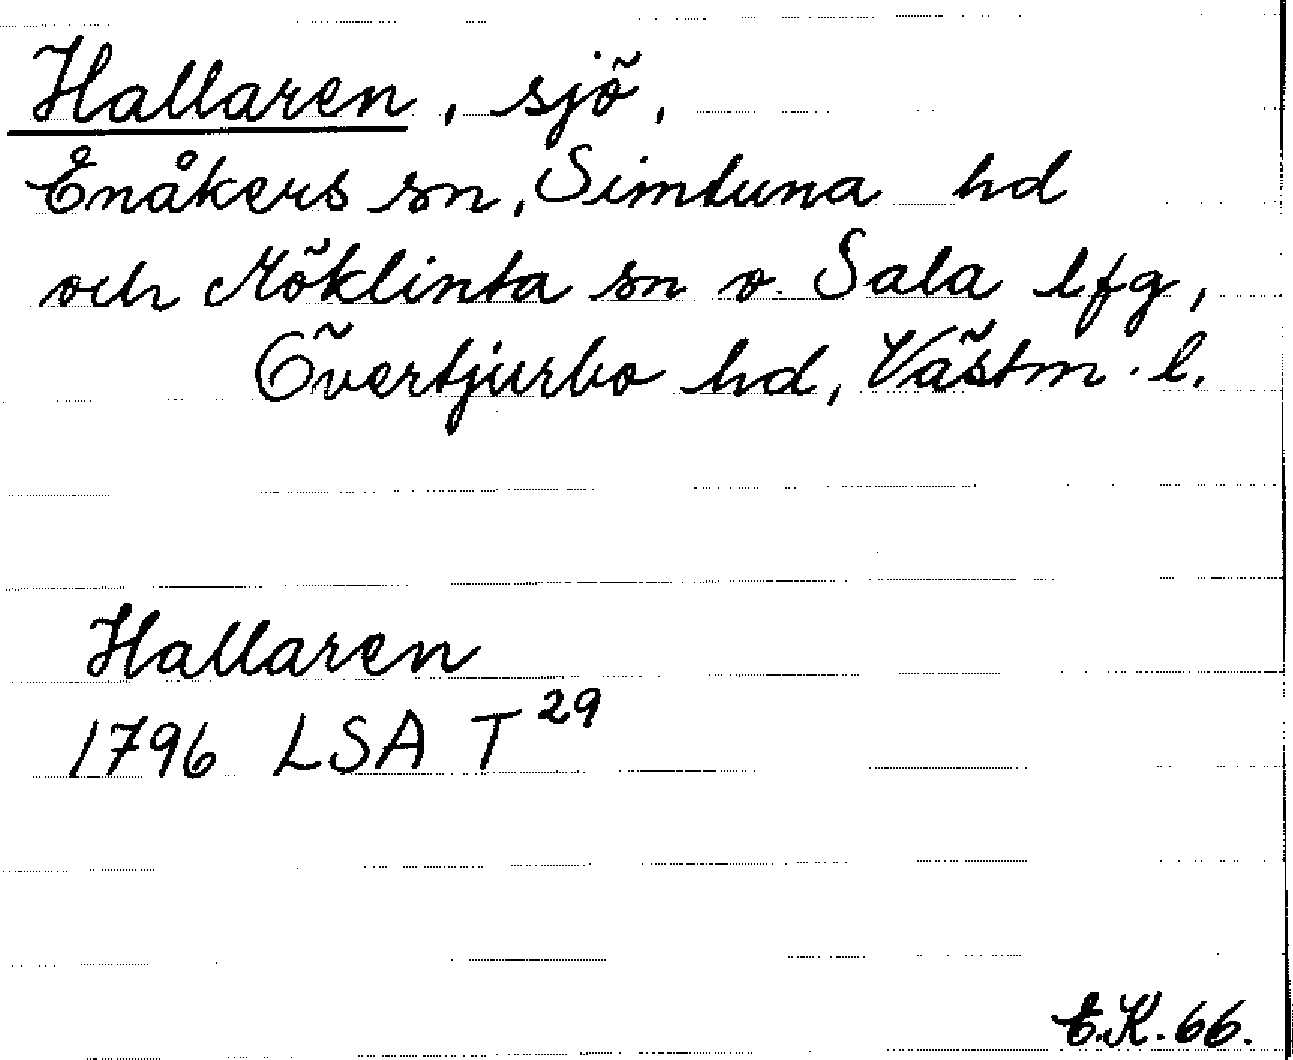 Hallaren, sjö,
Enåkers sn, Simtuna hd
och Möklinta sn o. Sala lfg,
Övertjurbo hd, Västm. l.
Hallaren
1796 LSA T 29
E.K. 66.